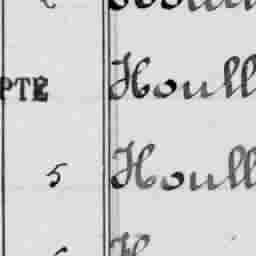 PTE Houll
5 Houll
H